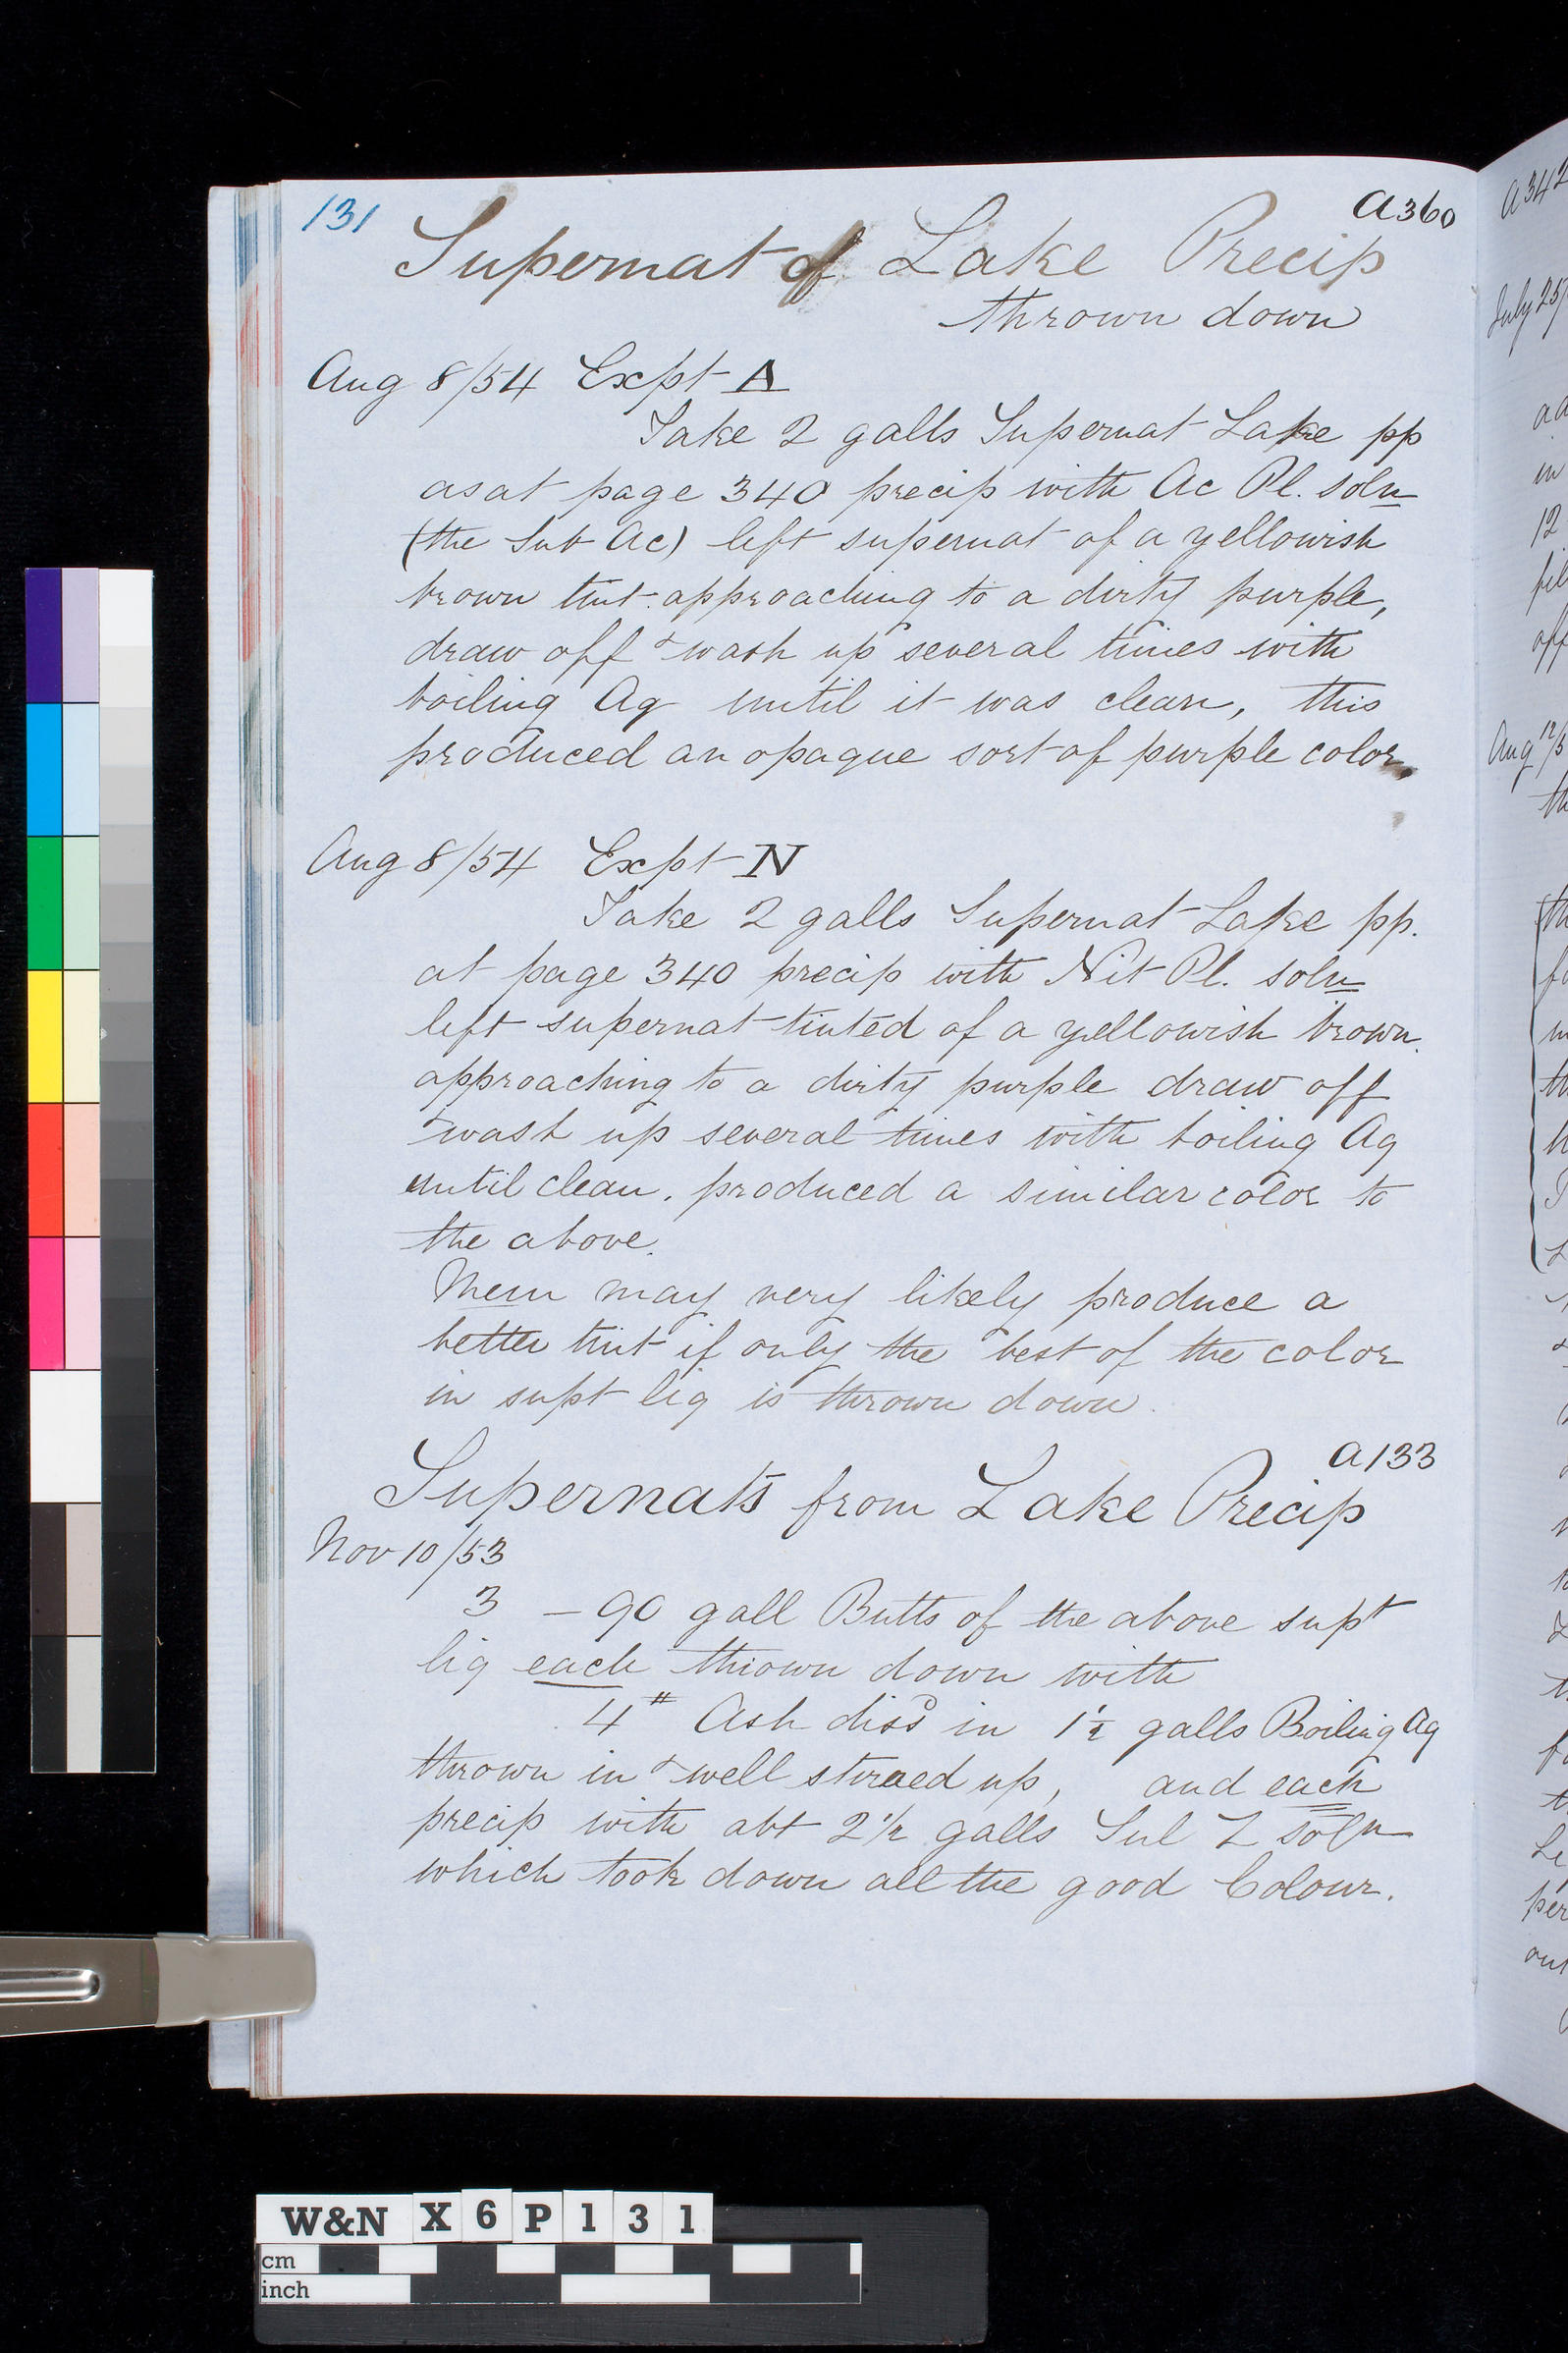 131
A360
Supernat of Lake Precip
thrown down
Aug 8/54 Expt A
Take 2 galls Supernat Lake pp
as at page 340 precip with Ac Pl. soln
(the Sub Ac) left supernat of a yellowish
brown tint approaching to a dirty purple,
draw off & wash up several times with
boiling Aq until it was clean, this
produced an opaque sort of purple color.
Aug 8/54 Expt N
Take 2 galls Supernat Lake pp.
at page 340 precip with Nit Pl. soln
left supernat tinted of a yellowish brown
approaching to a dirty purple draw off
& wash up several times with boiling Aq
until clean. produced a similar color to
the above.
Mem may very likely produce a
better tint if only the best of the color
in supt liq is thrown down.
A133
Supernats from Lake Precip
Nov 10/53
3 - 90 gall Butts of the above supt
liq each thrown down with
4# Ash dissd in 1½ galls Boiling Aq
thrown in & well stirred up, and each
precip with abt 2½ galls Sul Z soln
which took down all the good Colour.
A342
July 25/
Aug 12/5
12
W&N X6P131
cm
inch